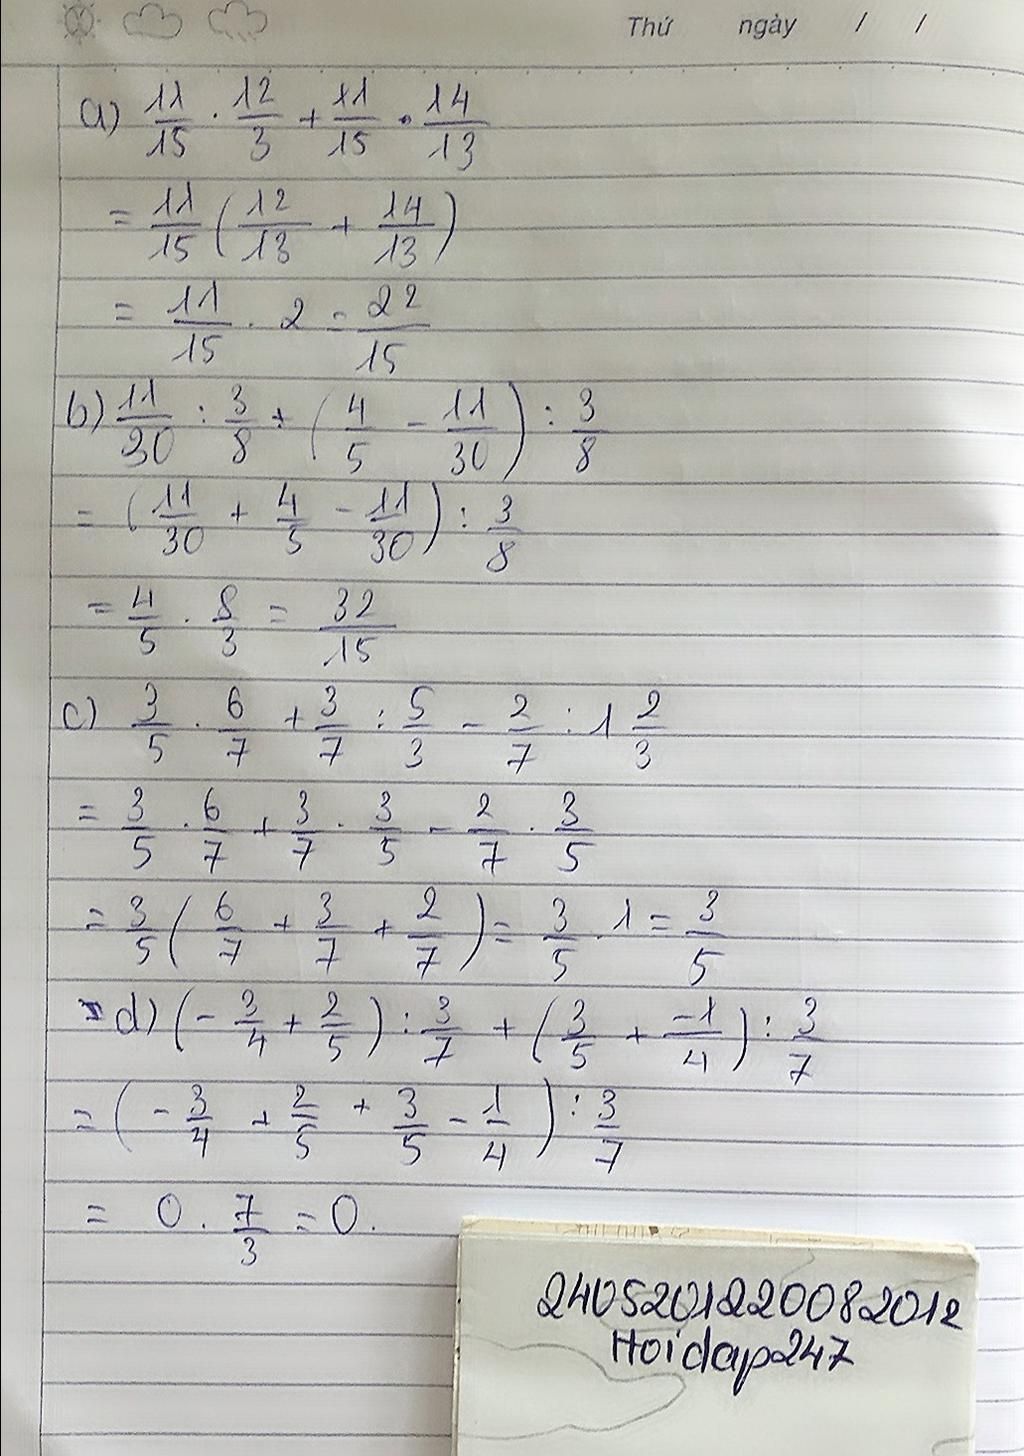 Thứ ngày / /
a) 11/15 . 12/3 + 11/15 . 14/13
= 11/15 ( 12/13 + 14/13 )
= 11/15 . 2 = 22/15
b) 11/30 : 3/8 + ( 4/5 - 11/30 ) : 3/8
= ( 11/30 + 4/5 - 11/30 ) : 3/8
= 4/5 . 8/3 = 32/15
c) 3/5 . 6/7 + 3/7 : 5/3 - 2/7 : 1 2/3
= 3/5 . 6/7 + 3/7 . 3/5 - 2/7 . 3/5
= 3/5 ( 6/7 + 3/7 + 2/7 ) = 3/5 . 1 = 3/5
d) ( - 3/4 + 2/5 ) : 3/7 + ( 3/5 + -1/4 ) : 3/7
= ( - 3/4 + 2/5 + 3/5 - 1/4 ) : 3/7
= 0 . 7/3 = 0.
2405201220082012
Hoidap247